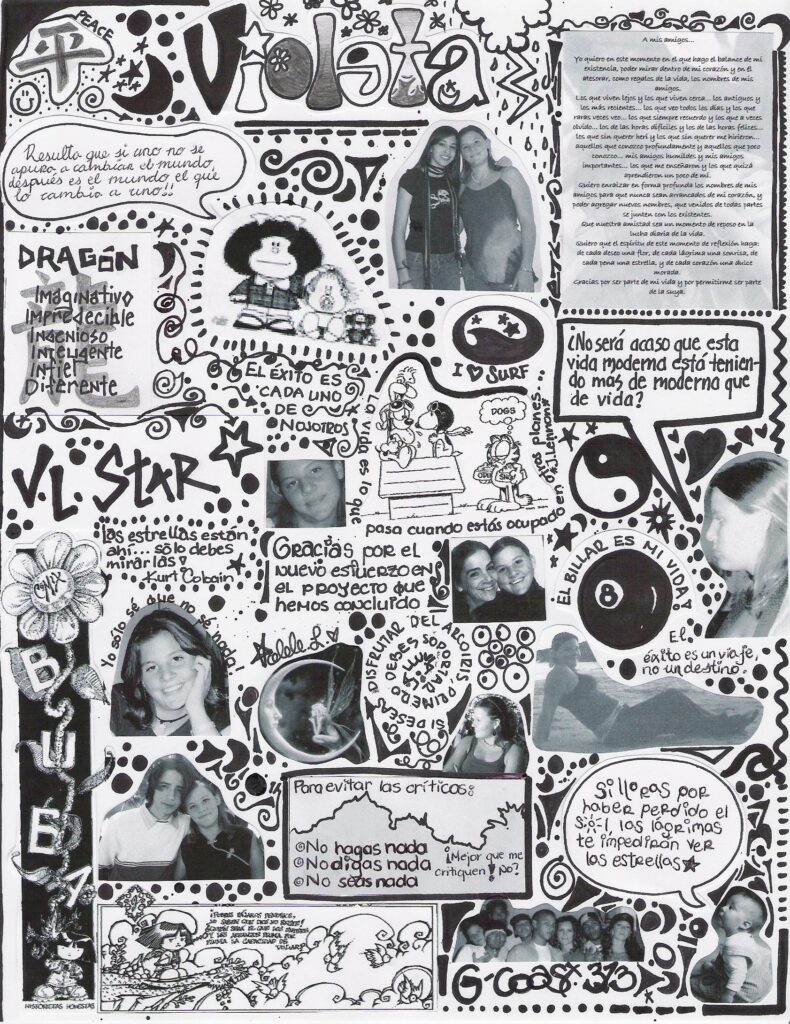 PEACE
平
Violeta
A mis amigos...
Yo quiero en este momento en el que hago el balance de mi
existencia, poder mirar dentro de mi corazón y en él
atesorar, como regalos de la vida, los nombres de mis
amigos.
Los que viven lejos y los que viven cerca... los antiguos y
los más recientes... los que veo todos los días y los que
raras veces veo... los que siempre recuerdo y los que a veces
olvido... los de las horas difíciles y los de las horas felices...
los que sin querer herí y los que sin querer me hirieron...
aquellos que conozco profundamente y aquellos que poco
conozco... mis amigos humildes y mis amigos
importantes... los que me enseñaron y los que quizá
aprendieron un poco de mi.
Quiero enraizar en forma profunda los nombres de mis
amigos para que nunca sean arrancados de mi corazón, y
poder agregar nuevos nombres, que venidos de todas partes
se junten con los existentes.
Que nuestra amistad sea un momento de reposo en la
lucha diaria de la vida.
Quiero que el espíritu de este momento de reflexión haga:
de cada deseo una flor, de cada lágrima una sonrisa, de
cada pena una estrella, y de cada corazón una dulce
morada.
Gracias por ser parte de mi vida y por permitirme ser parte
de la suya.
Resulta que si uno no se
apura a cambiar el mundo,
después es el mundo el que
lo cambia a uno!!
DRAGÓN
龍
Imaginativo
Impredecible
Ingenioso
Inteligente
Infiel
Diferente
I SURF
¿No será acaso que esta
vida moderna está tenien-
do mas de moderna que
de vida?
EL ÉXITO ES
CADA UNO
DE
NOSOTROS
La vida es lo que
pasa cuando estás ocupado en
otros planes.
DOGS
V.L. STAR
Las estrellas están
ahí... sólo debes
mirarlas
Kurt Cobain
Gracias por el
nuevo esfuerzo en
el proyecto que
hemos concluido
EL BILLAR ES MI VIDA!
8
El
éxito es un viaje,
no un destino.
COMIX
BUBA
HISTORIETAS HONESTAS
Yo sólo sé que no sé nada!
SI DESEAS
DISFRUTAR DEL
ARCOIRIS, PRIMERO
DEBES SOPORTAR
LA
Para evitar las críticas:
No hagas nada
No digas nada
No seas nada
¡Mejor que me
critiquen! No?
Si lloras por
haber perdido el
Sol, las lágrimas
te impedirán ver
las estrellas
G-Coast 313